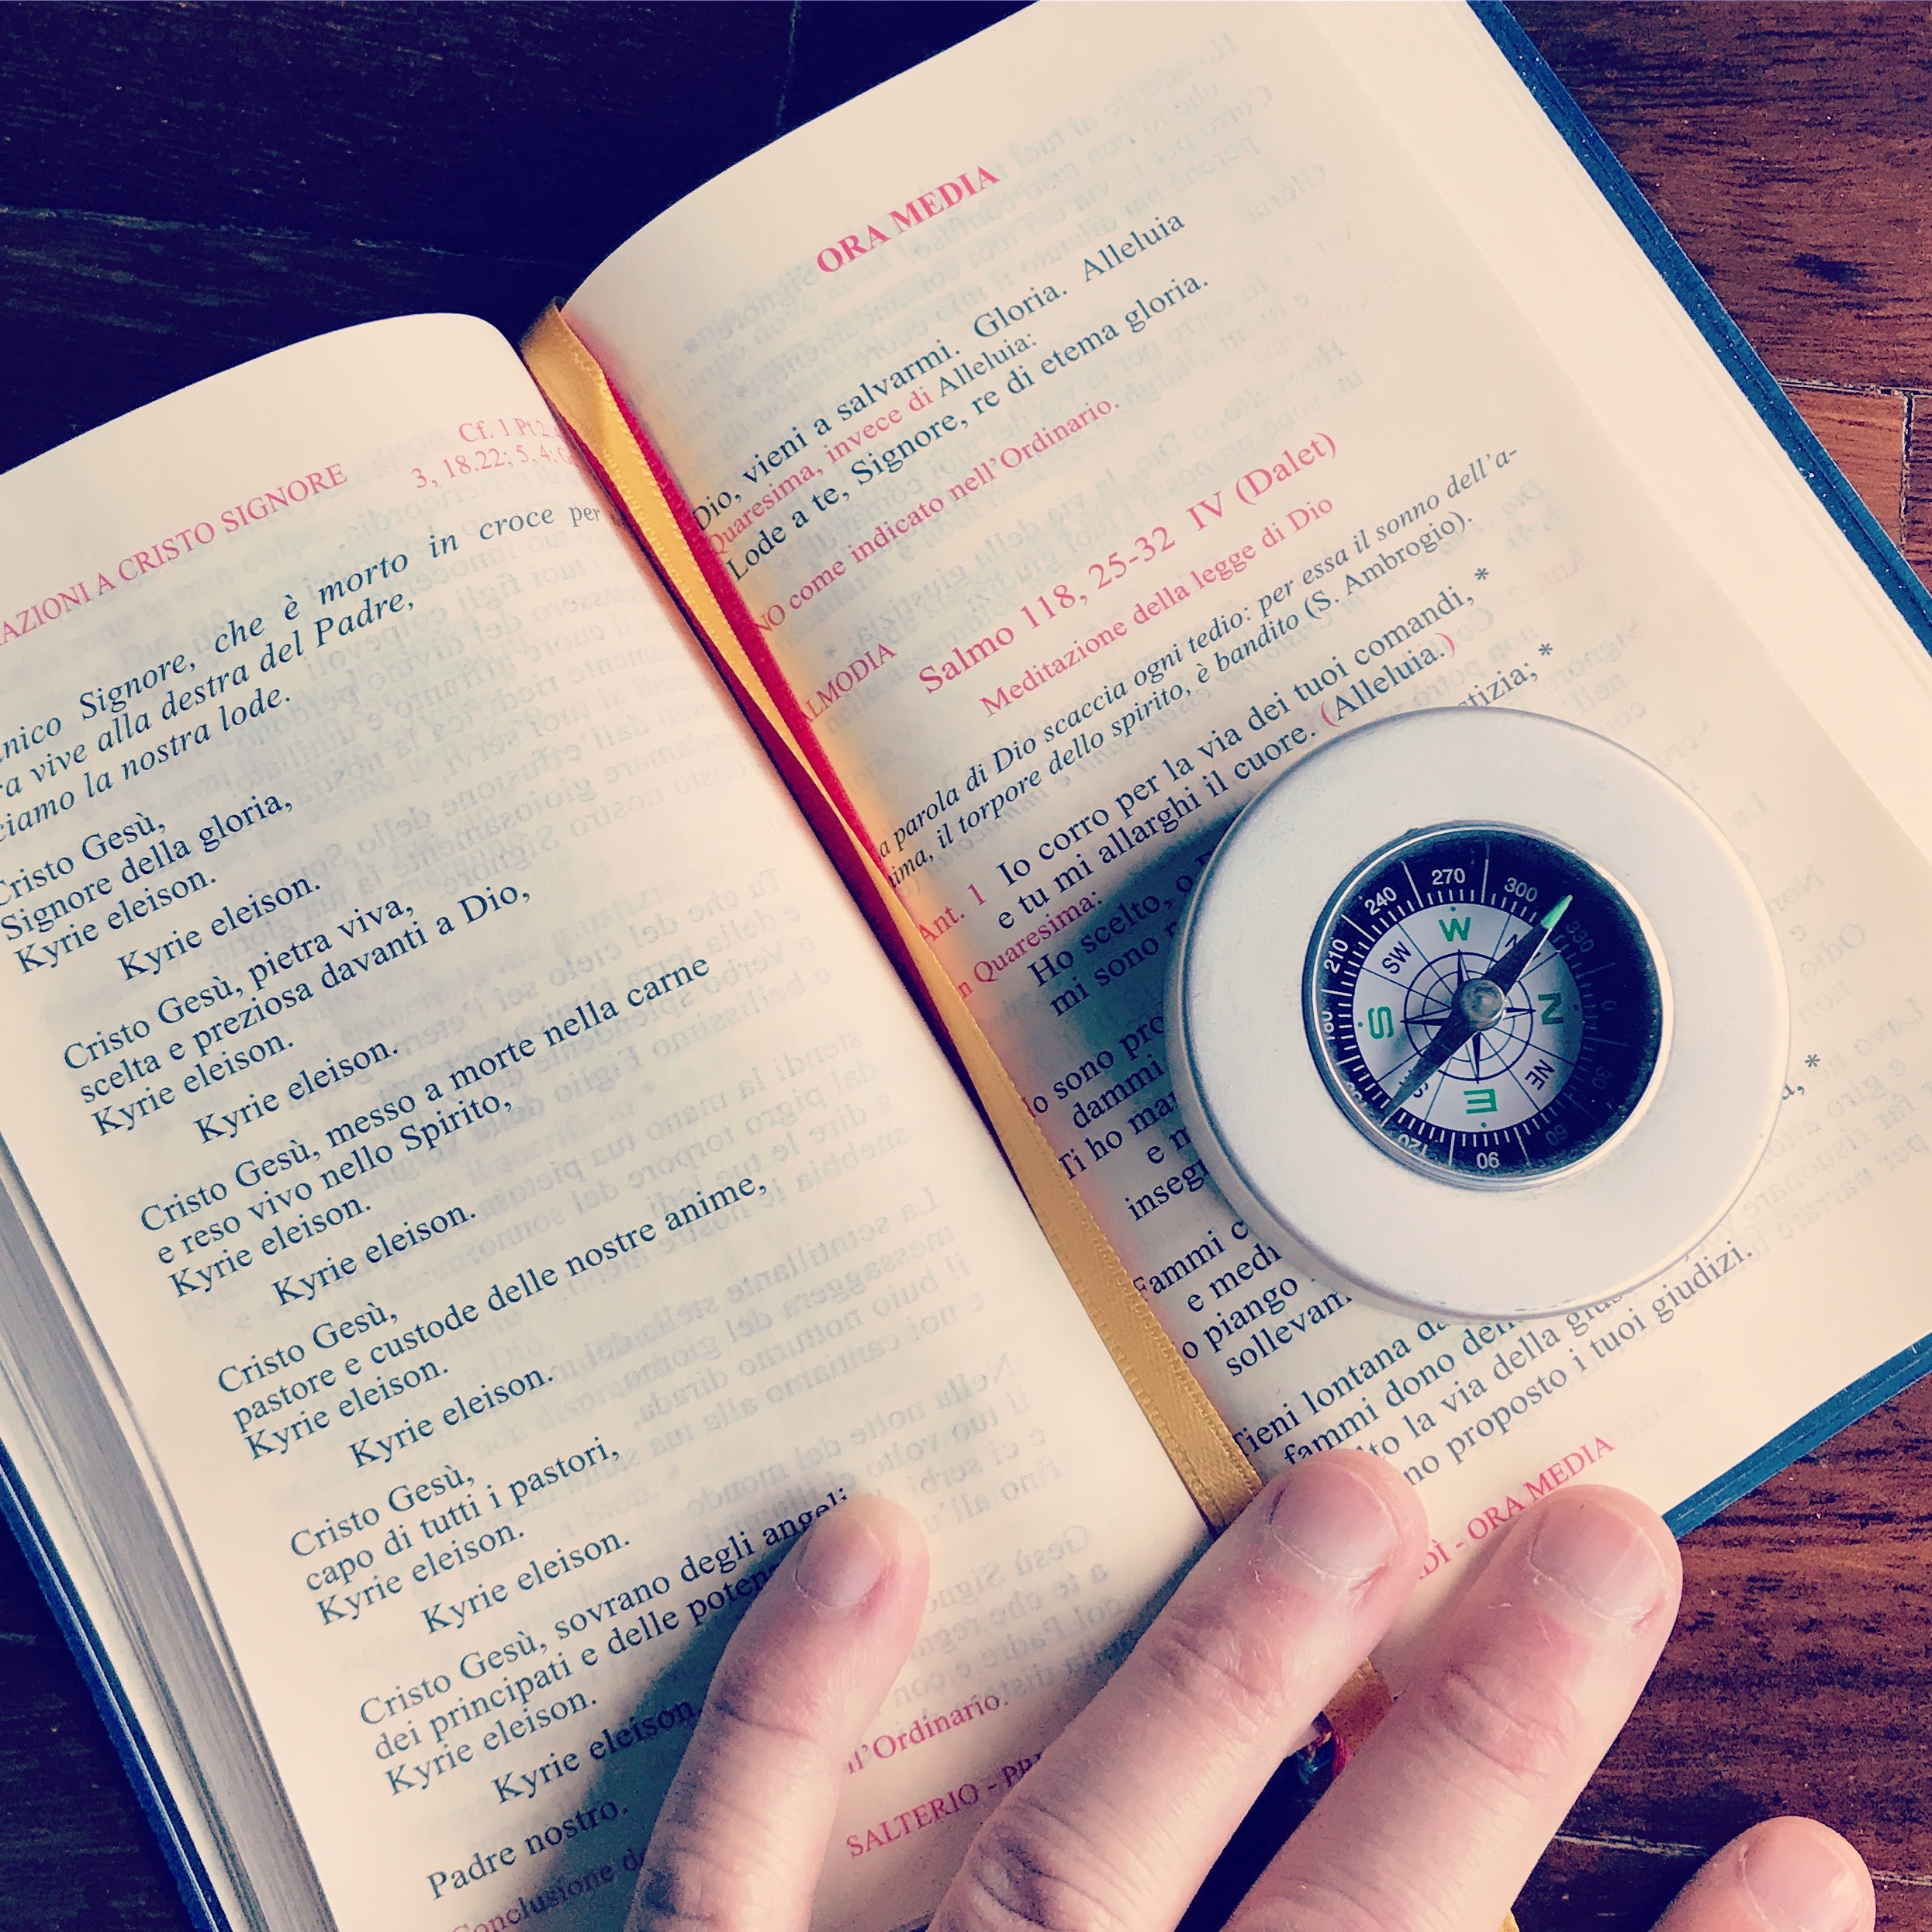 AZIONI A CRISTO SIGNORE
Cf. 1 Pt 2,
3, 18.22; 5, 4;
nico Signore, che è morto in croce per
ra vive alla destra del Padre,
ciamo la nostra lode.
Cristo Gesù,
Signore della gloria,
Kyrie eleison.
Kyrie eleison.
Cristo Gesù, pietra viva,
scelta e preziosa davanti a Dio,
Kyrie eleison.
Kyrie eleison.
Cristo Gesù, messo a morte nella carne
e reso vivo nello Spirito,
Kyrie eleison.
Kyrie eleison.
Cristo Gesù,
pastore e custode delle nostre anime,
Kyrie eleison.
Kyrie eleison.
Cristo Gesù,
capo di tutti i pastori,
Kyrie eleison.
Kyrie eleison.
Cristo Gesù, sovrano degli angeli
dei principati e delle poten
Kyrie eleison.
Kyrie eleison.
Padre nostro.
Conclusione
ll'Ordinario.
SALTERIO - PR
ORA MEDIA
Dio, vieni a salvarmi. Gloria. Alleluia
Quaresima, invece di Alleluia:
Lode a te, Signore, re di etema gloria.
NO come indicato nell'Ordinario.
ALMODIA
Salmo 118, 25-32 IV (Dalet)
Meditazione della legge di Dio
a parola di Dio scaccia ogni tedio: per essa il sonno dell'a-
nima, il torpore dello spirito, è bandito (S. Ambrogio).
Ant. 1 Io corro per la via dei tuoi comandi, *
e tu mi allarghi il cuore. (Alleluia.)
n Quaresima:
Ho scelto, o
stizia; *
mi sono
Io sono pro
dammi
Ti ho ma
a, *
e m
inseg
Fammi c
e medi
o piango
sollevam
Tieni lontana da
fammi dono del
to la via della gius
no proposto i tuoi giudizi.
DÌ - ORA MEDIA
210 240 270 300 330 0 30 60 90 120 180
W
SW N
S N
NE
E